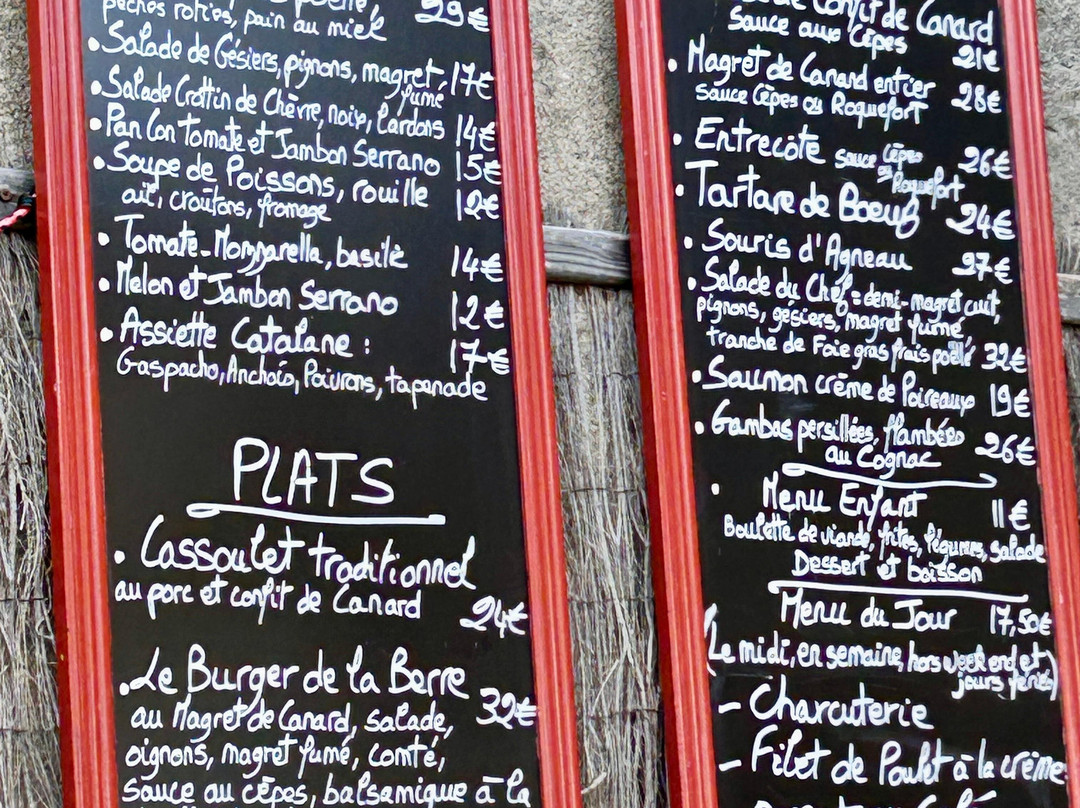 pêches roties, pain au miel 29€
• Salade de Gésiers, pignons, magret fumé 17€
• Salade Crottin de Chèvre, noix, lardons 14€
• Pan Con Tomate et Jambon Serrano 15€
• Soupe de Poissons, rouille 12€
ail, croûtons, fromage
• Tomate-Mozzarella, basilic 14€
• Melon et Jambon Serrano 12€
• Assiette Catalane : 17€
Gaspacho, Anchois, Poivrons, tapenade
PLATS
• Cassoulet traditionnel
au porc et confit de Canard 24€
• Le Burger de la Barre 32€
au Magret de Canard, salade,
oignons, magret fumé, comté,
sauce au cèpes, balsamique à la
Confit de Canard
Sauce aux Cèpes 21€
• Magret de Canard entier 28€
sauce Cèpes ou Roquefort
• Entrecôte sauce Cèpes 26€
ou Roquefort
• Tartare de Boeuf 24€
• Souris d'Agneau 27€
• Salade du Chef : demi-magret cuit,
pignons, gésiers, magret fumé,
tranche de Foie gras frais poêlé 32€
• Saumon crème de Poireaux 19€
• Gambas persillées, flambées 26€
au Cognac
• Menu Enfant 11€
Boulette de viande, frites, légumes, salade
Dessert et boisson
Menu du Jour 17,50€
(Le midi, en semaine, hors week end et
jours fériés)
- Charcuterie
- Filet de Poulet à la crème